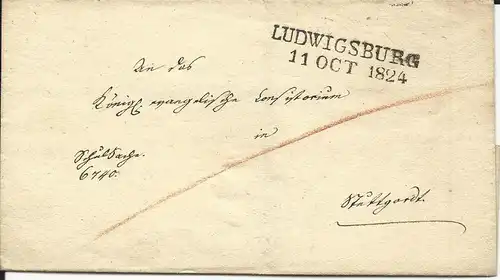 LUDWIGSBURG
11 OCT 1824
An das
Königl. evangelische Consistorium
in
SchulSache.
6740.
Stuttgardt.